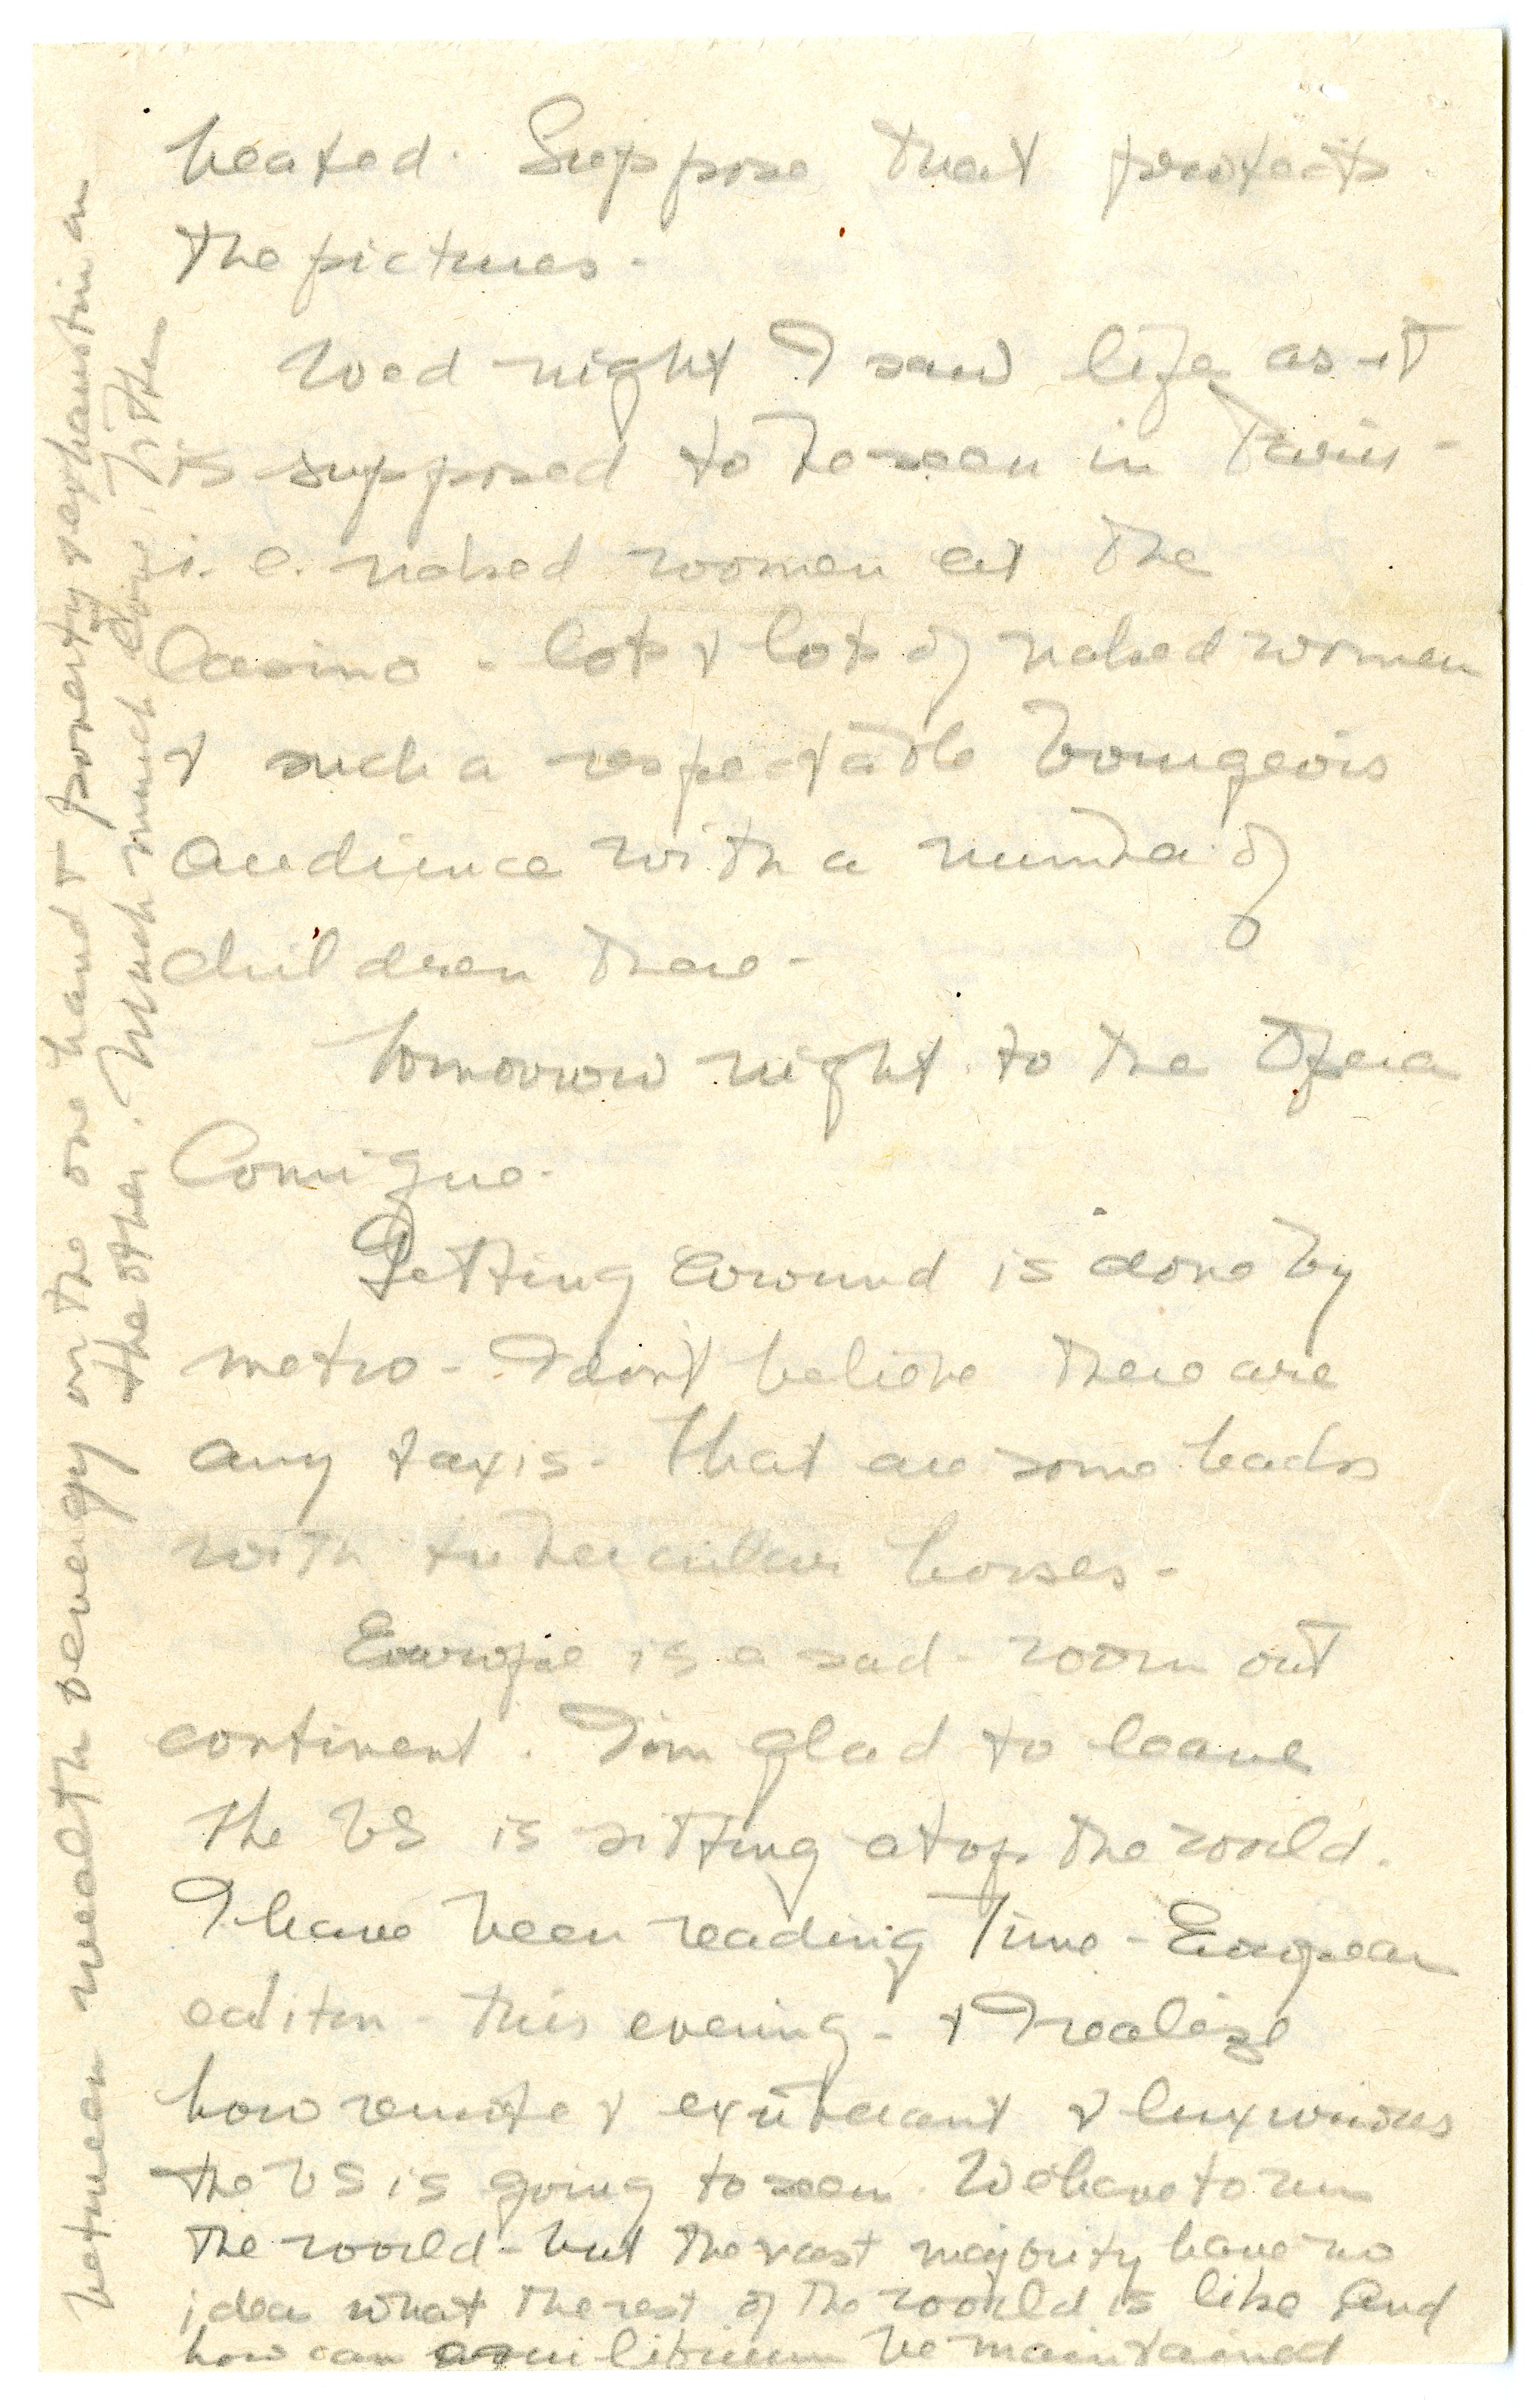 heated. Suppose that protects
the pictures -
Wed night I saw life as it
is supposed to be seen in Paris -
i.e. naked women at the
Casino - lots & lots of naked women
& such a respectable bourgeois
audience with a number of
children there -
Tomorrow night to the Opera
Comique -
Getting around is done by
metro - I don't believe there are
any taxis - That are some hacks
with tubercular horses -
Europe is a sad - worn out
continent. I'm glad to leave
The US is sitting atop the world.
I have been reading Time - European
edition - this evening - & I realize
how remote & exuberant & luxurious
the US is going to seem. We have to run
the world - but the vast majority have no
idea what the rest of the world is like and
how can equilibrium be maintained
between wealth & energy on the one hand & poverty & exhaustion on
the other. Much much love,